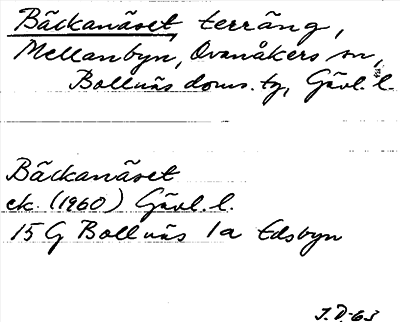 Bäckanäset, terräng,
Mellanbyn, Ovanåkers sn,
Bollnäs doms. tg, Gävl. l.
Bäckanäset
ek. (1960) Gävl. l.
15 G Bollnäs 1a Edsbyn
J.D.-63